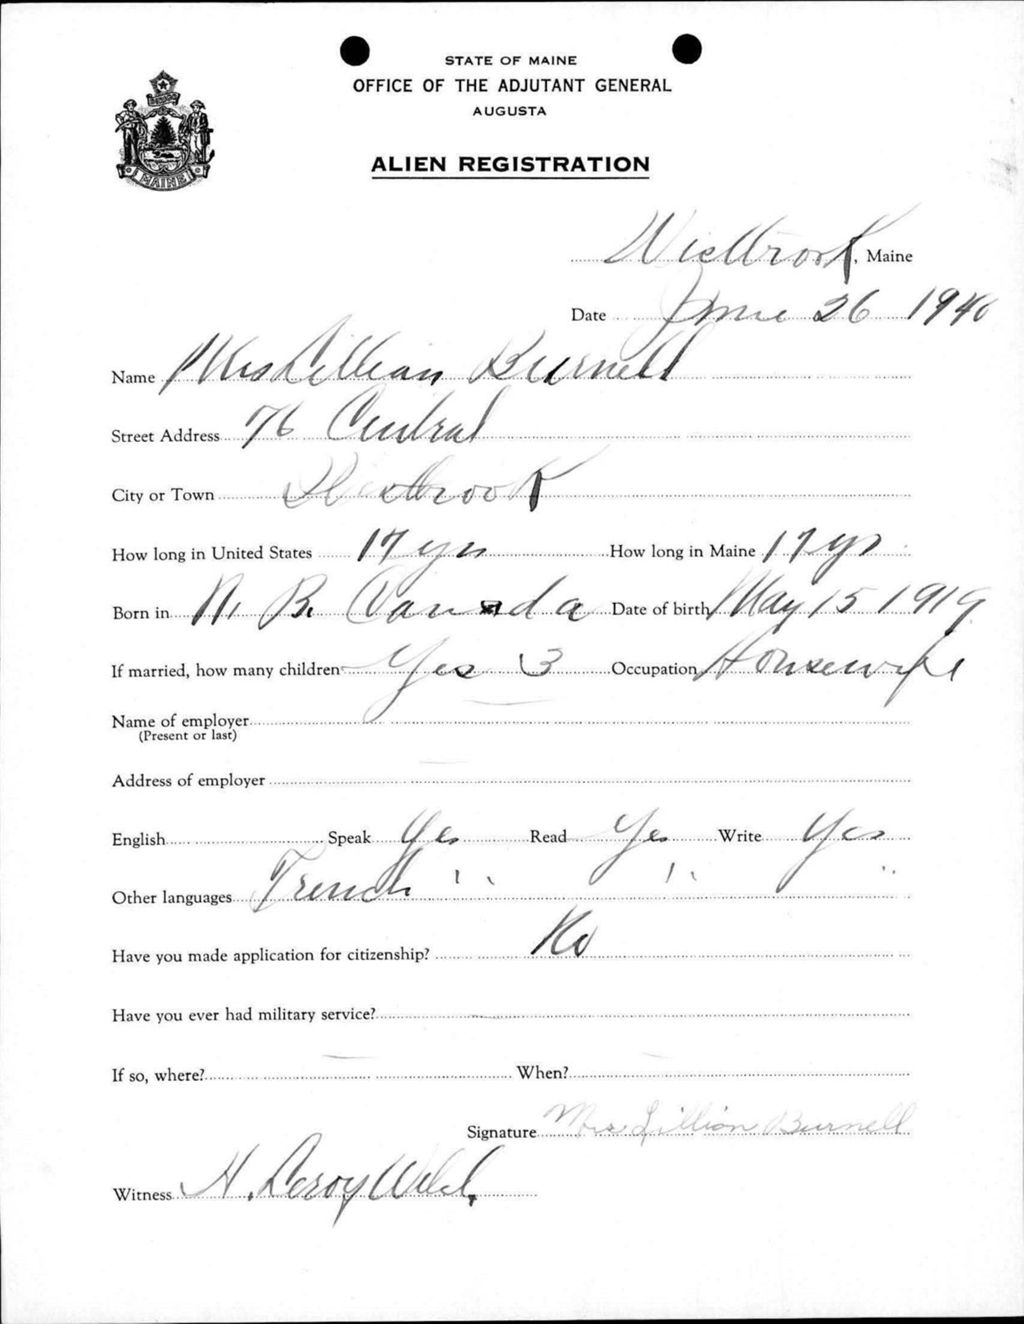 STATE OF MAINE
OFFICE OF THE ADJUTANT GENERAL
AUGUSTA
MAINE
ALIEN REGISTRATION
Westbrook, Maine
Date June 26 1940
Name Mrs Lillian Burnell
Street Address 76 Central
City or Town Westbrook
How long in United States 17 yrs How long in Maine 17 yrs
Born in N. B. Canada Date of birth May 15 1919
If married, how many children Yes 3 Occupation Housewife
Name of employer
(Present or last)
Address of employer
English Speak Yes Read Yes Write Yes
Other languages French " " "
Have you made application for citizenship? No
Have you ever had military service?
If so, where? When?
Signature Mrs Lillian Burnell
Witness H. Leroy